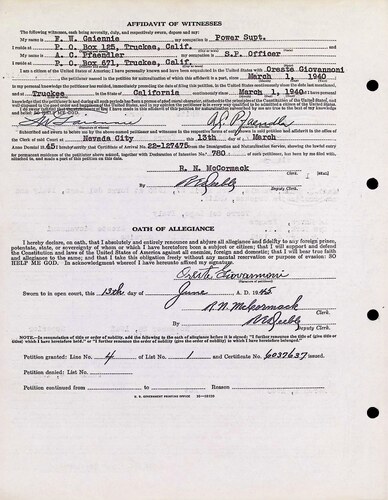 AFFIDAVIT OF WITNESSES
The following witnesses, each being severally, duly, and respectively sworn, depose and say:
My name is F. W. Gaiennie, my occupation is Power Supt.
I reside at P. O. Box 125, Truckee, Calif.
My name is A. C. Pfaendler, my occupation is S.P. Officer
I reside at P. O. Box 671, Truckee, Calif.
I am a citizen of the United States of America; I have personally known and have been acquainted in the United States with Oreste Giovannoni
the petitioner named in the petition for naturalization of which this affidavit is a part, since March 1, 1940
to my personal knowledge the petitioner has resided, immediately preceding the date of filing this petition, in the United States continuously since the date last mentioned,
and at Truckee, in the State of California continuously since March 1, 1940
HELP ME GOD.
Subscribed and sworn to before me by the above-named petitioner and witnesses in the respective forms of oath shown in said petition and affidavit in the office of the
Clerk of said Court at Nevada City this 13th day of March
Anno Domini 1945 I hereby certify that Certificate of Arrival No. 22-127475 from the Immigration and Naturalization Service, showing the lawful entry for
permanent residence of the petitioner above named, together with Declaration of Intention No. 780 of such petitioner, has been by me filed with,
attached to, and made a part of this petition on this date.
R. N. McCormack
Clerk.
By
Deputy Clerk.
OATH OF ALLEGIANCE
I hereby declare, on oath, that I absolutely and entirely renounce and abjure all allegiance and fidelity to any foreign prince,
potentate, state, or sovereignty of whom or which I have heretofore been a subject or citizen; that I will support and defend
the Constitution and laws of the United States of America against all enemies, foreign and domestic; that I will bear true faith
and allegiance to the same; and that I take this obligation freely without any mental reservation or purpose of evasion: SO
HELP ME GOD. In acknowledgment whereof I have hereunto affixed my signature.
Oreste Giovannoni
Sworn to in open court, this 13th day of June A. D. 1945
R. N. McCormack
Clerk.
By
Deputy Clerk.
NOTE.—In renunciation of title or order of nobility, add the following to the oath of allegiance before it is signed: "I further renounce the title of (give title or
titles) which I have heretofore held", or "I further renounce the order of nobility (give the order of nobility) to which I have heretofore belonged."
Petition granted: Line No. 4 of List No. 1 and Certificate No. 6037637 issued.
Petition denied: List No.
Petition continued from to Reason
U. S. GOVERNMENT PRINTING OFFICE